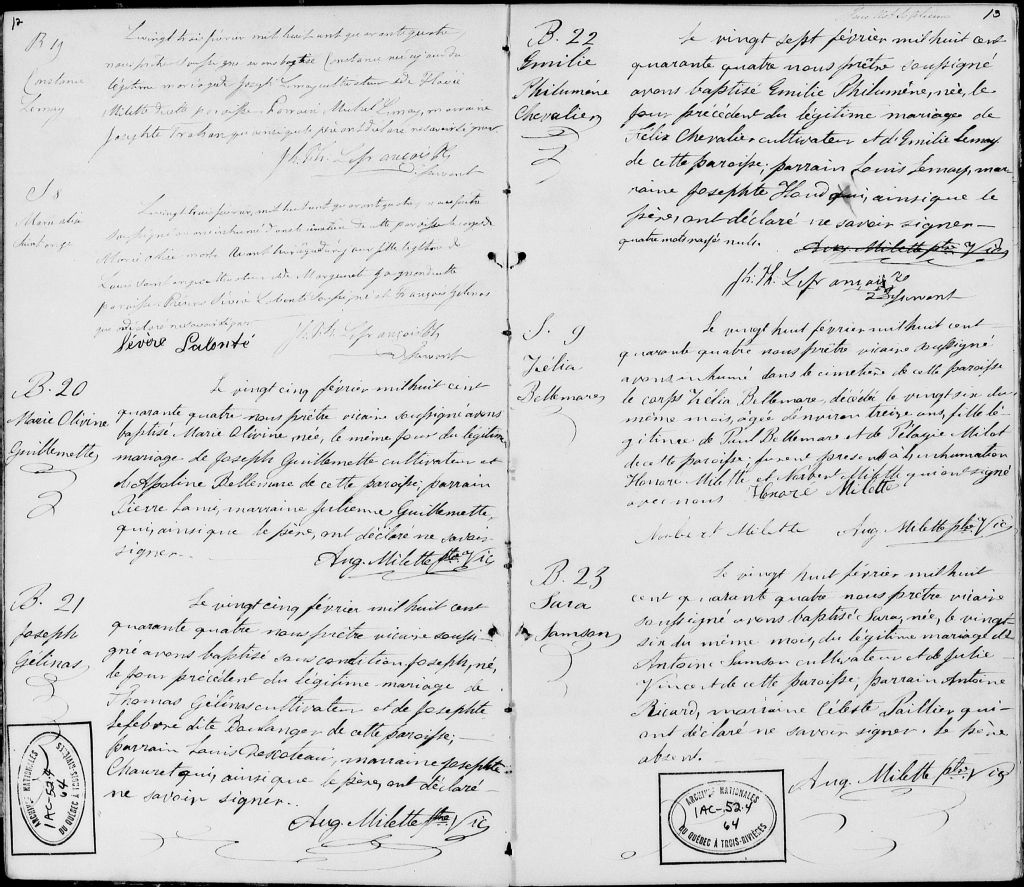 12
B 19
Constance
Lemay
Le vingt trois février mil huit cent quarante quatre,
nous prêtre soussigné avons baptisé Constance née
légitime mariage de Joseph Lemay cultivateur et de
Milette de cette paroisse. Parrain, Michel Lemay, marraine
Josephte Trahan qui ainsi que père ont déclaré ne savoir signer
Jh. Th. Lefrançois Ptr
Desservant
S 8
Le vingt trois février, mil huit cent quarante quatre, nous prêtre
soussigné avons inhumé dans le cimetière de cette paroisse le corps de
Marie morte
Louis cultivateur et de Marguerite Gagnon de cette
paroisse. Présens Sévère Lalonté soussigné et François Gélinas
qui a déclaré ne savoir signer
Sévère Lalonté
Jh. Th. Lefrançois Ptr
Desservant
B. 20
Marie Olivine
Guillemette
Le vingt cinq février mil huit cent
quarante quatre nous prêtre vicaire soussigné avons
baptisé Marie Olivine, née, le même jour du légitime
mariage de Joseph Guillemette cultivateur et
d'Apoline Bellemare de cette paroisse; parrain
Pierre Lamy, marraine Julienne Guillemette,
qui, ainsi que le père, ont déclaré ne savoir
signer..
Aug. Milette ptre Vic
B. 21
Joseph
Gélinas
Le vingt cinq février mil huit cent
quarante quatre nous prêtre vicaire soussi-
gné avons baptisé sous condition Joseph, né,
le jour précédent du légitime mariage de
Thomas Gélinas cultivateur et de Josephte
Lefebvre dite Boulanger de cette paroisse;
parrain Louis Descoteau, marraine Josephte
Chauret qui, ainsi que le père, ont déclaré
ne savoir signer..
Aug. Milette ptre Vic
ARCHIVES NATIONALES
1AC-52.4
64
DU QUÉBEC À TROIS-RIVIÈRES
13
B. 22
Emilie
Philumène
Chevalier
Le vingt sept février mil huit cent
quarante quatre nous prêtre soussigné
avons baptisé Emilie Philumène, née, le
jour précédent du légitime mariage de
Félix Chevalier cultivateur et d'Emilie Lemay
de cette paroisse; parrain Louis Lemay, mar-
raine Josephte Houd qui, ainsi que le
père, ont déclaré ne savoir signer—
quatre mots rayés nuls.
Aug. Milette ptre Vic
Jh. Th. Lefrançois
Desservant
S. 9
Zélia
Bellemare
Le vingt huit février mil huit cent
quarante quatre nous prêtre vicaire soussigné
avons inhumé dans le cimetière de cette paroisse
le corps Zélia Bellemare, décédée le vingt six du
même mois, âgée d'environ treize ans, fille lé-
gitime de Paul Bellemare et de Pélagie Milot
de cette paroisse; furent présent à l'inhumation
Honoré Milette et Norbert Milette qui ont signé
avec nous Honoré Milette
Norbert Milette Aug. Milette ptre Vic
B. 23
Sara
Samson
Le vingt huit février mil huit
cent quarante quatre nous prêtre vicaire
soussigné avons baptisé Sara, née, le vingt
six du même mois, du légitime mariage de
Antoine Samson cultivateur et de Julie
Vincent de cette paroisse; parrain Antoine
Ricard, marraine Céleste Paillier, qui
ont déclaré ne savoir signer. Le père
absent.
Aug. Milette ptre Vic
ARCHIVES NATIONALES
1AC-52.4
64
DU QUÉBEC À TROIS-RIVIÈRES